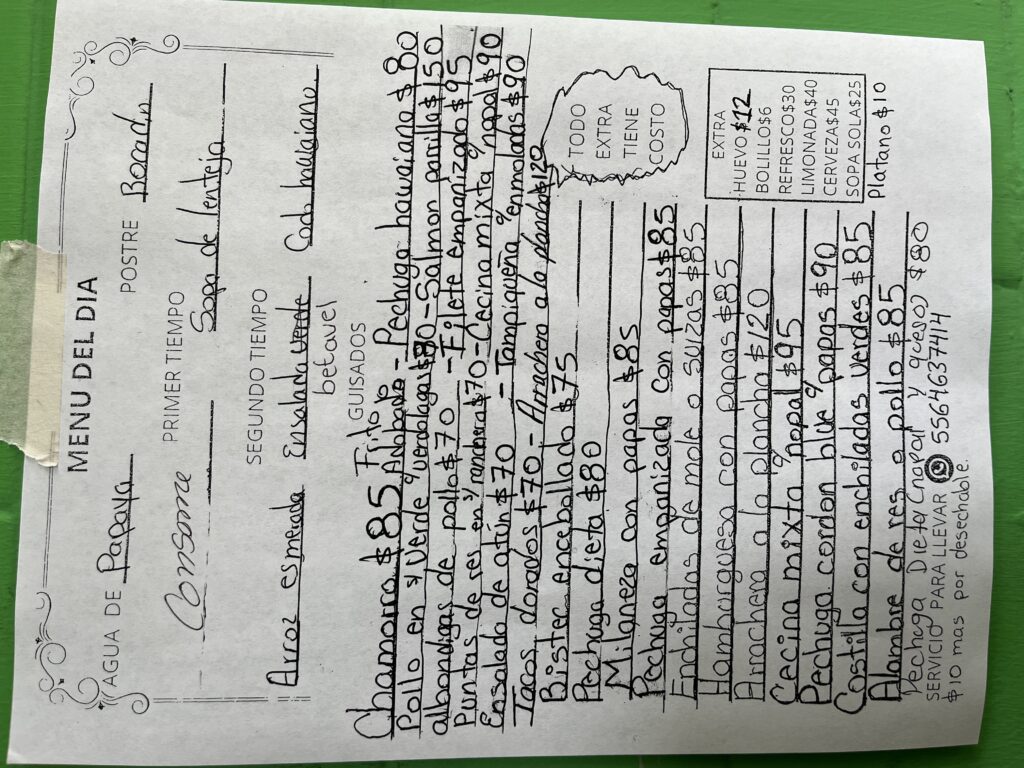 MENU DEL DIA
AGUA DE Papaya
POSTRE Bocadin
PRIMER TIEMPO
Consome
Sopa de lenteja
SEGUNDO TIEMPO
Arroz esmerada Ensalada verde Cod. hawaiano
betavel
GUISADOS
Chamorro $85 Frito o Adobado - Pechuga hawaiana $80
Pollo en s/ verde c/verdolagas $80 - Salmon parrilla $150
albondigas de pollo $70 - Filete empanizado $95
Puntas de res en s/ ranchera $70 - Cecina mixta c/nopal $90
Ensalada de atún $70 - Tampiqueña c/enmoladas $90
Tacos dorados $70 - Arrachera a la plancha $120
Bistec encebollado $75
Pechuga dieta $80
Milaneza con papas $85
Pechuga empanizada con papas $85
Enchiladas de mole o suizas $85
Hamburguesa con papas $85
Arrachera a la plancha $120
Cecina mixta c/nopal $95
Pechuga cordon blue c/papas $90
Costilla con enchiladas verdes $85
Alambre de res o pollo $85
Pechuga Dieta (nopal y queso) $80
SERVICIO PARA LLEVAR 5564637414
$10 mas por desechable.
TODO
EXTRA
TIENE
COSTO
EXTRA
HUEVO $12
BOLILLO$6
REFRESCO$30
LIMONADA$40
CERVEZA$45
SOPA SOLA$25
Platano $10